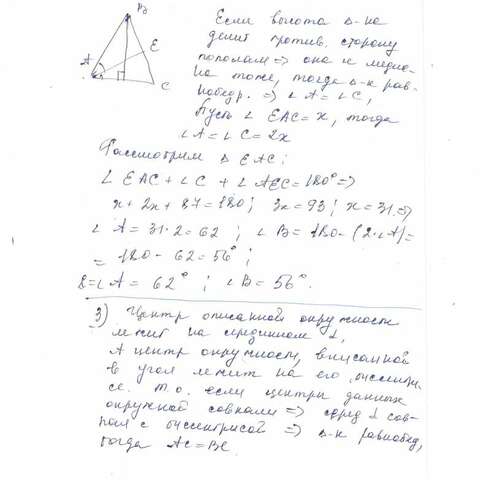 B
E
A
C
Если высота Δ-ка
делит против. сторону
пополам ⇒ она и медиа-
на тоже, тогда Δ-к рав-
нобедр. ⇒ ∠A = ∠C,
Пусть ∠ EAC = x, тогда
∠A = ∠C = 2x
Рассмотрим Δ EAC:
∠ EAC + ∠C + ∠AEC = 180° ⇒
x + 2x + 87 = 180; 3x = 93; x = 31. ⇒
∠ A = 31·2 = 62; ∠ B = 180 - (2·∠A) =
= 180 - 62 = 56°;
∠A = 62°; ∠B = 56°.
3) Центр описанной окружности
лежит на срединном ⊥,
А центр окружности, вписанной
в угол лежит на его биссектри-
се. т.о. если центры данных
окружной совпали ⇒ сред ⊥ сов-
пал с биссектрисой ⇒ Δ-к равнобед,
тогда AC = BC.